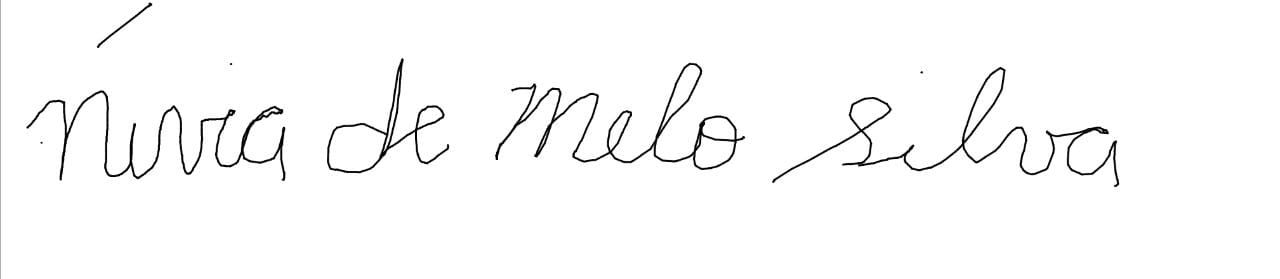 Nívia de Melo Silva